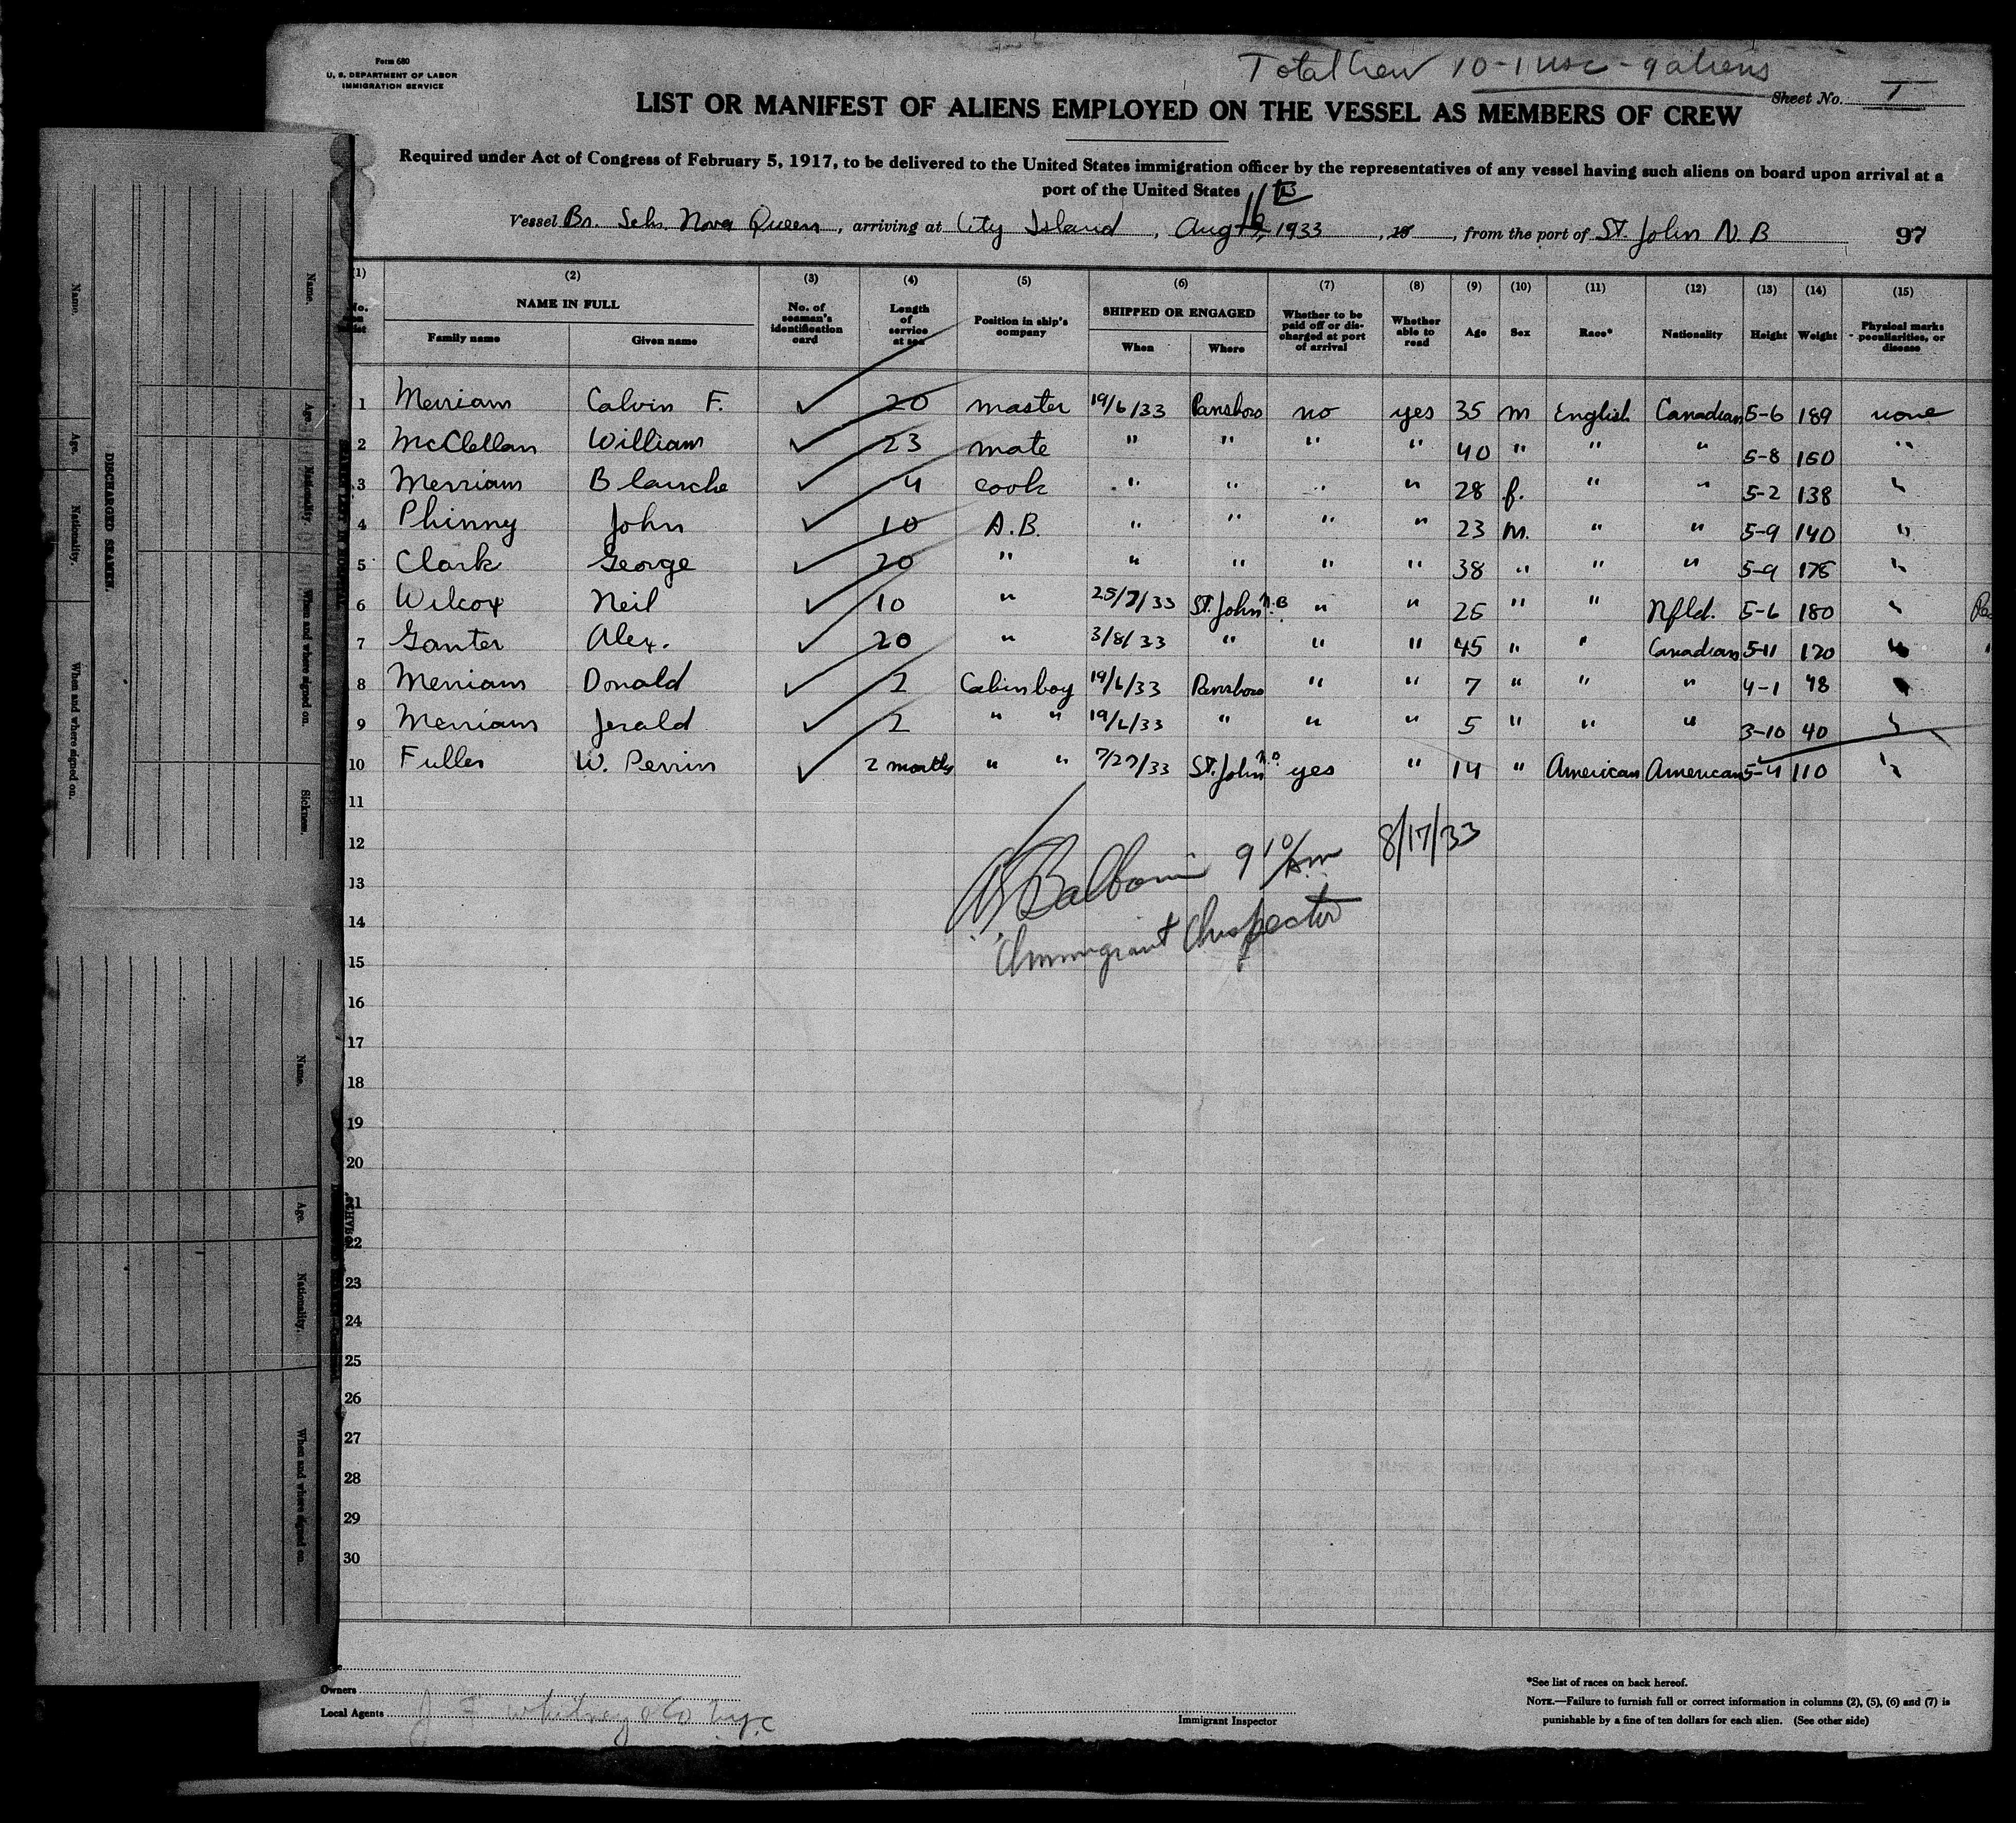 Form 680
U. S. DEPARTMENT OF LABOR
IMMIGRATION SERVICE
Total Crew 10 - 1 usc - 9 aliens
Sheet No. I
LIST OR MANIFEST OF ALIENS EMPLOYED ON THE VESSEL AS MEMBERS OF CREW
Required under Act of Congress of February 5, 1917, to be delivered to the United States immigration officer by the representatives of any vessel having such aliens on board upon arrival at a
port of the United States
Vessel Br. Sch. Nova Queen, arriving at City Island, Aug 16th, 1933, 19, from the port of St. John N.B 97
(1) (2) (3) (4) (5) (6) (7) (8) (9) (10) (11) (12) (13) (14) (15)
NAME IN FULL
Family name Given name
No. of seaman's identification card
Length of service at sea
Position in ship's company
SHIPPED OR ENGAGED
When Where
Whether to be paid off or discharged at port of arrival
Whether able to read
Age Sex Race* Nationality Height Weight
Physical marks peculiarities, or disease
1 Merriam Calvin F. ✓ 20 master 19/6/33 Parrsboro no yes 35 m English Canadian 5-6 189 none
2 McClellan William ✓ 23 mate " " " " 40 " " " 5-8 160 "
3 Merriam Blanche ✓ 4 cook " " " " 28 f. " " 5-2 138 "
4 Phinny John ✓ 10 A.B. " " " " 23 m. " " 5-9 140 "
5 Clark George ✓ 20 " " " " " 38 " " " 5-9 175 "
6 Wilcox Neil ✓ 10 " 25/7/33 St. John N.B " " 25 " " Nfld. 5-6 180 "
7 Ganter Alex. ✓ 20 " 3/8/33 " " " 45 " " Canadian 5-11 170 "
8 Merriam Donald ✓ 2 Cabin boy 19/6/33 Parrsboro " " 7 " " " 4-1 48 "
9 Merriam Jerald ✓ 2 " " 19/6/33 " " " 5 " " " 3-10 40 "
10 Fuller W. Perrin ✓ 2 months " " 7/27/33 St. John N.B yes " 14 " American American 5-4 110 "
11
12
13
14
15
16
17
18
19
20
21
22
23
24
25
26
27
28
29
30
9 10/Am 8/17/33
Immigrant Inspector
Owners
Local Agents J F Whitney & Co N.Y.C
Immigrant Inspector
*See list of races on back hereof.
NOTE.—Failure to furnish full or correct information in columns (2), (5), (6) and (7) is
punishable by a fine of ten dollars for each alien. (See other side)
DISCHARGED SEAMEN.
Name. Age. Nationality. When and where signed on.
Name. Age. Nationality. When and where signed on. Sickness.
Name. Age. Nationality. When and where signed on.